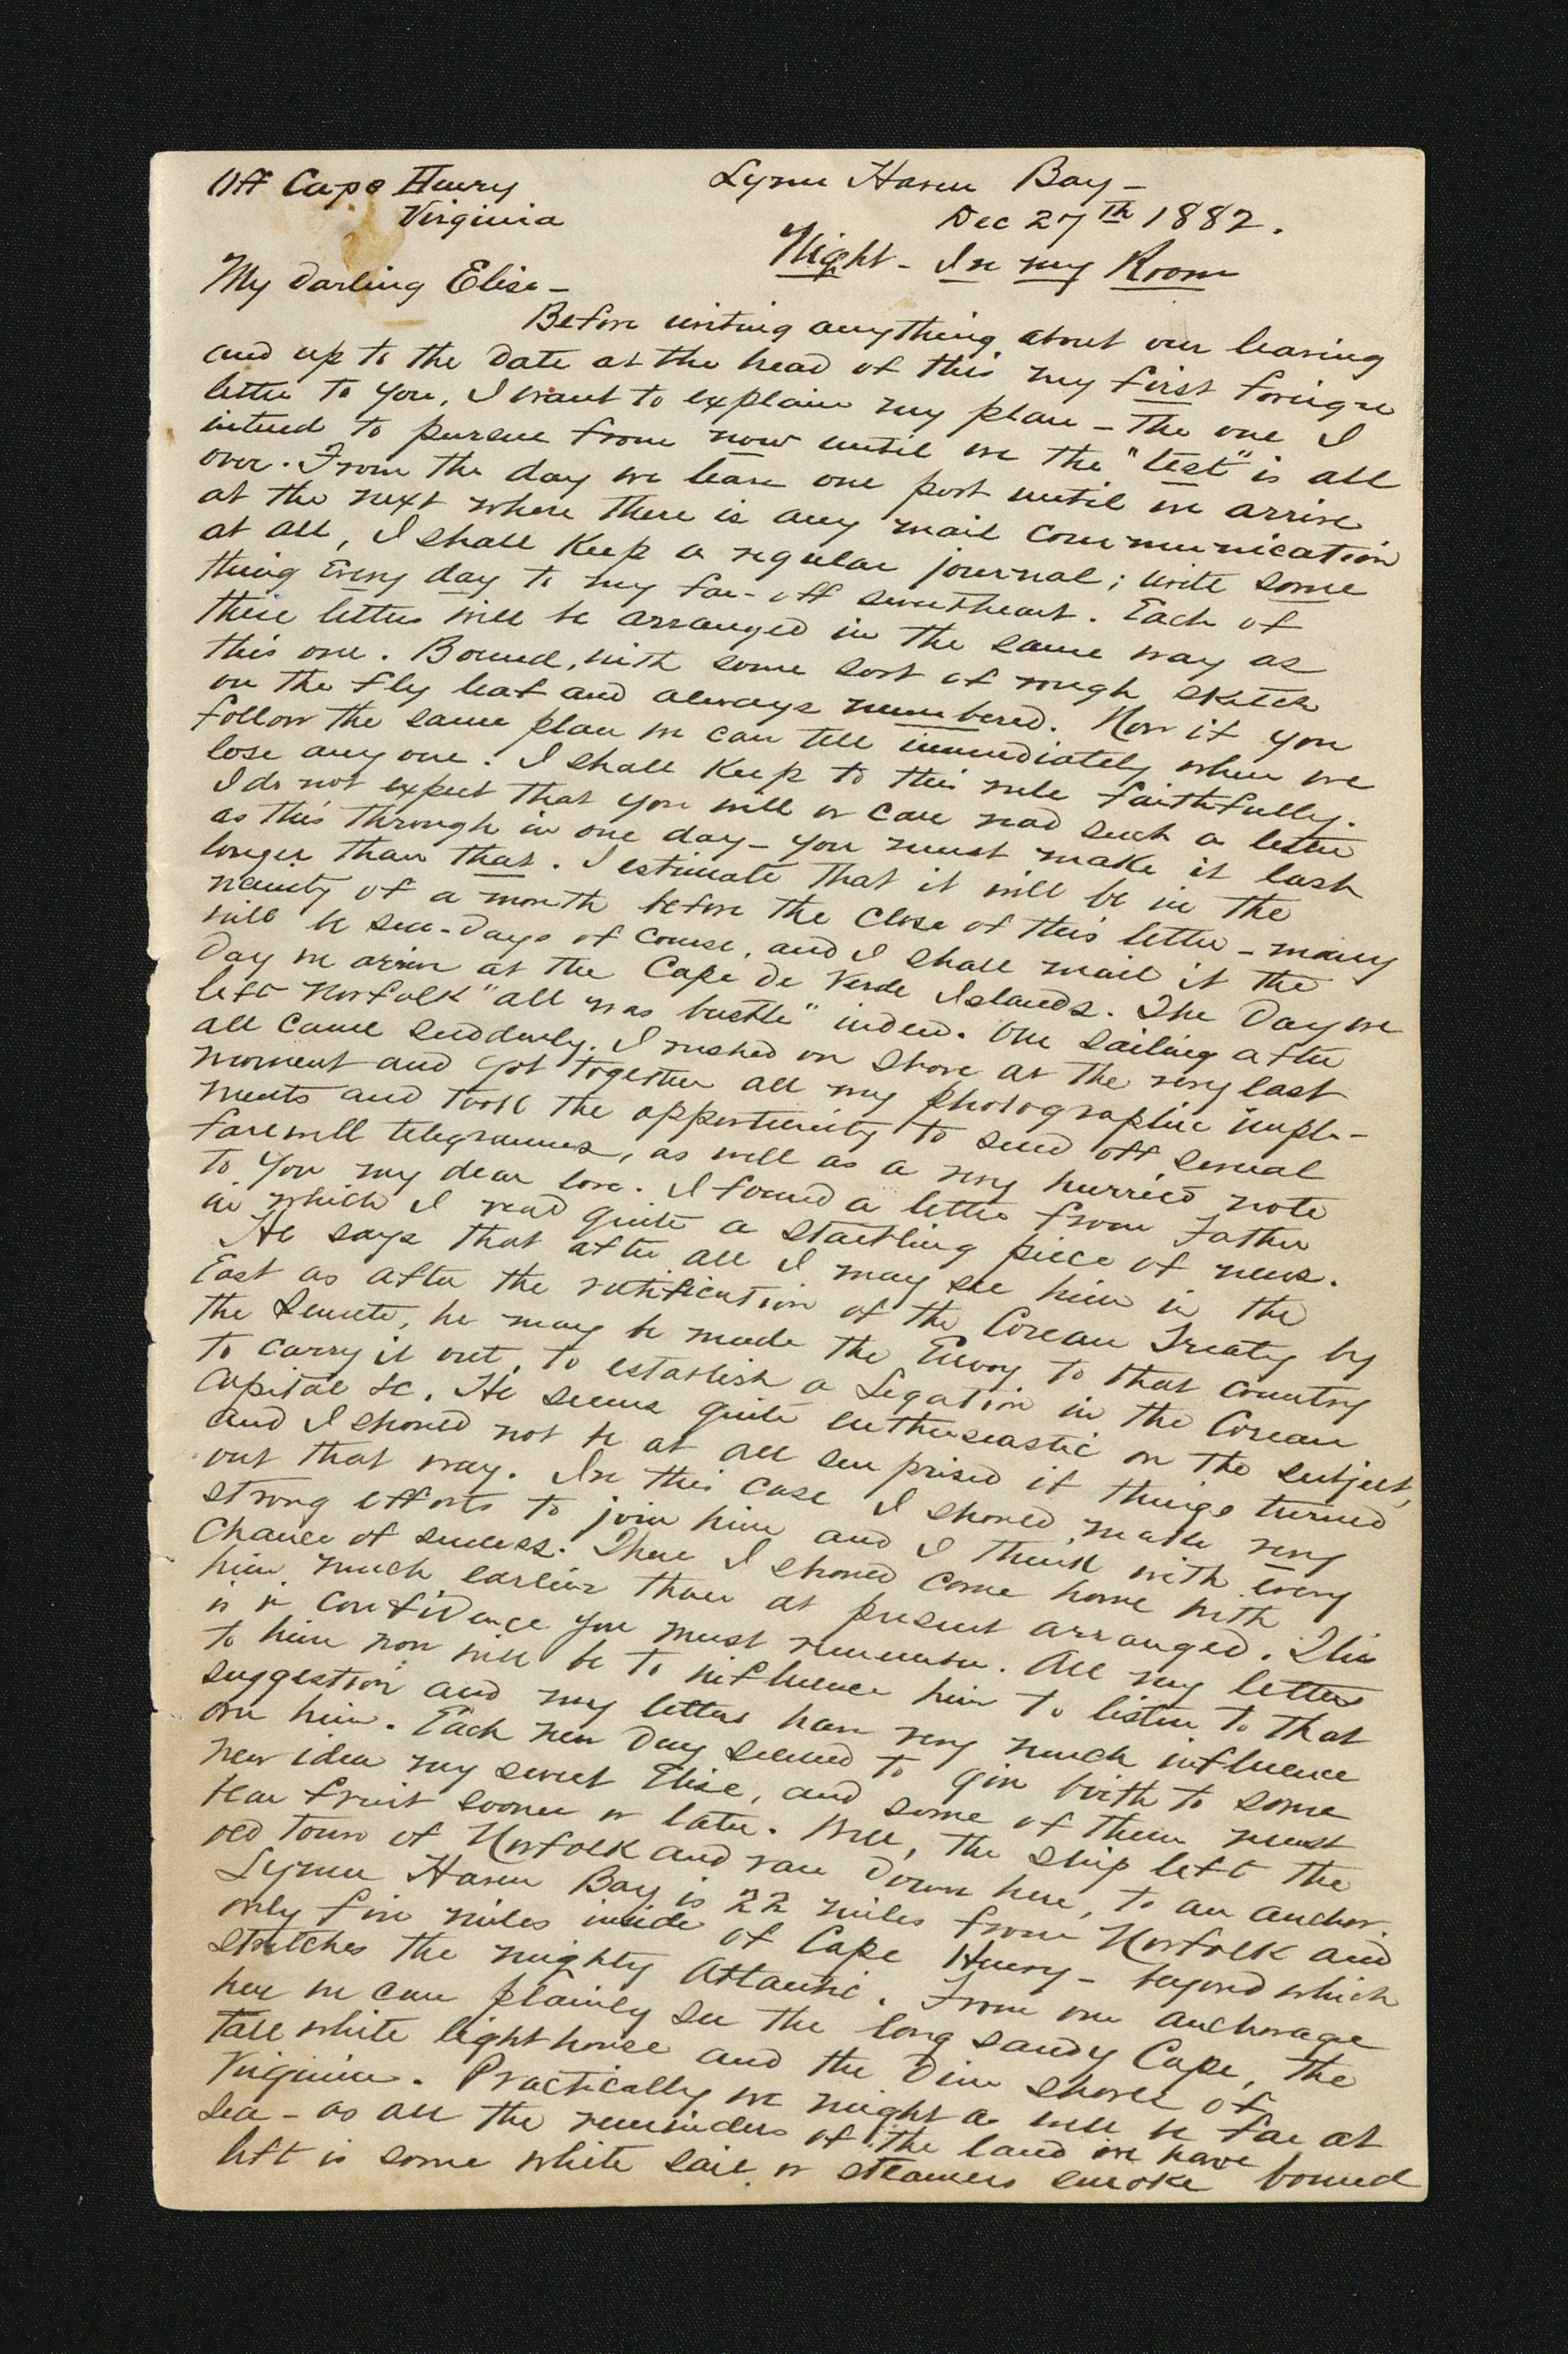 Off Cape Henry
Virginia
Lynn Haven Bay –
Dec 27th 1882.
Night – In my Room
My Darling Elise –
Before writing anything about our leaving
and up to the date at the head of this my first foreign
letter to you, I want to explain my plan – the one I
intend to pursue from now until we the "test" is all
over. From the day we leave one port until we arrive
at the next where there is any mail communication
at all, I shall keep a regular journal; write some
thing every day to my far-off sweetheart. Each of
these letters will be arranged in the same way as
this one. Bound, with some sort of rough sketch
on the fly leaf and always numbered. Now if you
follow the same plan we can tell immediately when we
lose any one. I shall keep to this rule faithfully.
I do not expect that you will or can read such a letter
as this through in one day – you must make it last
longer than that. I estimate that it will be in the
vicinity of a month before the close of this letter – many
will be sea-days of course, and I shall mail it the
Day we arrive at the Cape de Verde Islands. The Day we
left Norfolk "all was bustle" indeed. Our sailing after
all came suddenly. I rushed on shore at the very last
moment and got together all my photographic imple-
ments and took the opportunity to send off several
farewell telegrammes, as well as a very hurried note
to you my dear love. I found a letter from Father
in which I read quite a startling piece of news.
He says that after all I may see him in the
East as after the ratification of the Corean Treaty by
the Senate, he may be made the Envoy to that country
to carry it out, to establish a Legation in the Corean
Capital &c. He seems quite enthuseastic on the subject,
and I should not be at all surprised if things turned
out that way. In this case I should make very
strong efforts to join him and I think with every
chance of success. Then I should come home with
him much earlier than at present arranged. This
is in confidence you must remember. All my letters
to him now will be to influence him to listen to that
suggestion and my letters have very much influence
on him. Each new Day seemed to give birth to some
new idea my sweet Elise, and some of them must
bear fruit sooner or later. Well, the ship left the
old town of Norfolk and ran down here, to an anchor.
Lynn Haven Bay is 22 miles from Norfolk and
only five miles inside of Cape Henry – beyond which
stretches the mighty Atlantic. From our anchorage
here we can plainly see the long sandy Cape, the
tall white light house and the Dim shores of
Virginia. Practically we might as well be far at
sea – as all the reminders of the land we have
left is some white sail or steamers smoke bound